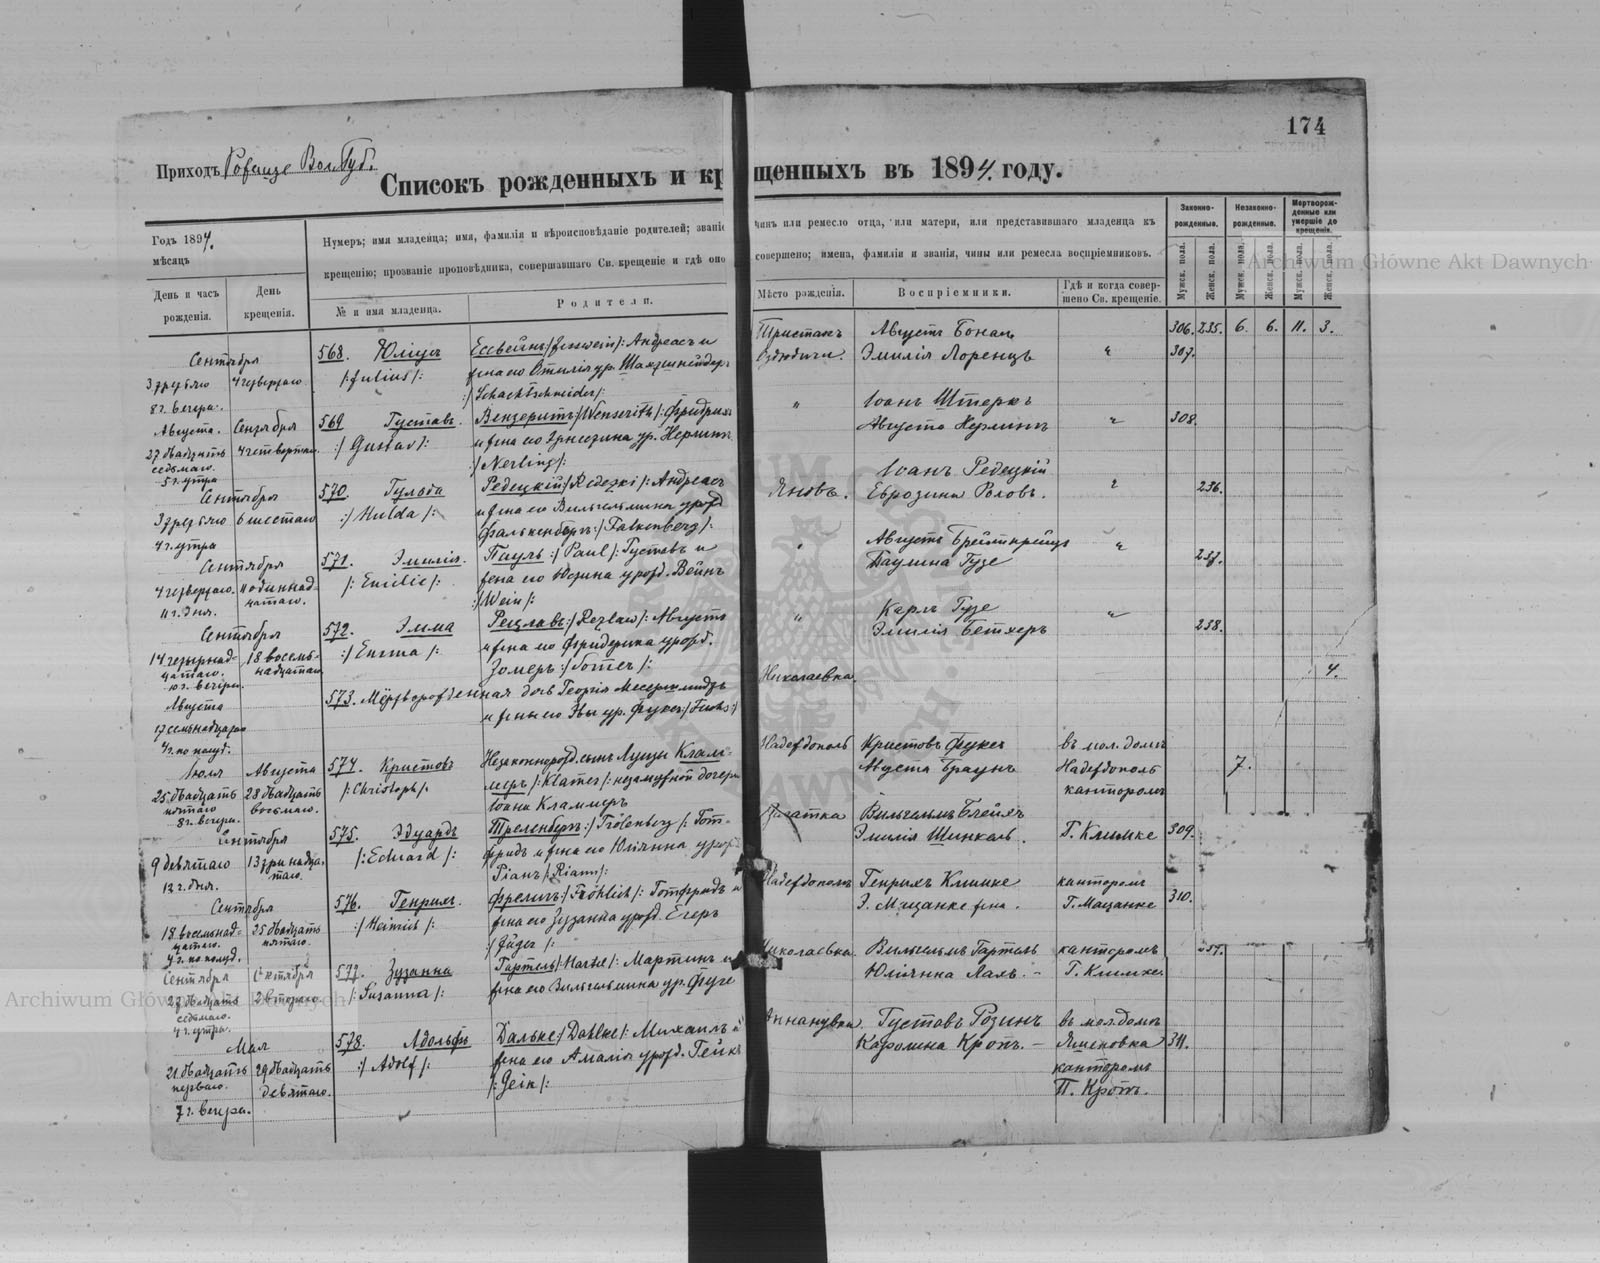 174
Приходъ Ровище Вол. Губ.
Списокъ рожденныхъ и кр щенныхъ въ 1894. году.
Годъ 1894.
мѣсяцъ
Нумеръ; имя младенца; имя, фамилія и вѣроисповѣданіе родителей; званіе
чинъ или ремесло отца, или матери, или представившаго младенца къ
крещенію; прозваніе проповѣдника, совершавшаго Св. крещеніе и гдѣ оно
совершено; имена, фамиліи и званія, чины или ремесла воспріемниковъ.
Законно-рожденные.
Незаконно-рожденные.
Мертворожденные или умершіе до крещенія.
День и часъ рожденія.
День крещенія.
№ и имя младенца.
Родители.
Мѣсто рожденія.
Воспріемники.
Гдѣ и когда совершено Св. крещеніе.
Мужск. пола.
Женск. пола.
Мужск. пола.
Женск. пола.
Мужск. пола.
Женск. пола.
306. 235. 6. 6. 11. 3.
Сентября
3 третьяго 4 четвертаго
8 г. вечера.
568. Юліусъ
/:Julius/:
Ессвейнъ:/Jesswein/: Андреасъ и
жена его Отилія ур. Шахтшнейдеръ
:/Schachtschneider/:
Тристанъ
Августъ Бонакъ
Эмилія Лоренцъ
"
307.
Августа. Сентября
27 двадцать седьмаго. 4 четвертаго
5 г. утра
569 Густавъ.
:/Gustav/:
Вензеритъ:/Wenserith/: Фридрихъ
и жена его Эрнестина ур. Нерлингъ
:/Nerling/:
"
Іоанъ Штеркъ
Августа Нерлингъ
"
308.
Сентября
3 третьяго 6 шестаго
4 г. утра
570. Гульда
:/Hulda/:
Редецкій:/Redezki/: Андреасъ
и жена его Вильгельмина урожд
Фалькенбергъ:/Falkenberg/:
Яновъ.
Іоанъ Редецкій
Еврозина Роловъ.
"
236.
Сентября
4 четвертаго. 11 одиннадцатаго.
11 г. дня.
571. Эмилія.
/:Emilie/:
Пауль:/Paul/: Густавъ и
жена его Юстина урожд. Вейнъ
:/Wein/:
"
Августъ Брейткрейцъ
Паулина Гузе
"
237.
Сентября
14 четырнадцатаго. 18 восемьнадцатаго
10 г. вечера.
572. Эмма
:/Emma/:
Рецлавъ:/Rezlaw/: Августъ
и жена его Фридерика урожд.
Зомеръ:/Somer/:
"
Карлъ Гузе
Эмилія Бетхеръ
"
238.
Августа
17 семьнадцатаго
4 г. по полуд.
573. Мёртворожденная дочь Георгія Месершмидъ
и жены его Эвы ур. Фуксъ:/Fuchs:/
Николаевка.
4.
Іюля Августа
25 двадцать пятаго 28 двадцать восьмаго.
8 г. вечера.
574. Кристовъ
/:Christoph/:
Незаконнорожд. сынъ Луизы Кламмеръ:/Klamer/: незамужной дочери
Іоана Кламмеръ
Надеждополь
Кристовъ Фуксъ
Августа Браунъ
въ мол. домѣ
Надеждополь
канторомъ
7.
Сентября
9 девятаго 13 тринадцатаго.
12 г. дня.
575. Эдуардъ
/:Eduard/:
Треленбергъ:/Trölenberg/: Готфридъ и жена его Юліянна урожд
Ріанъ/:Riann/:
Вильгельмъ Блейхъ
Эмилія Шинкель.
Г. Климке
309.
Сентября
18 восемьнадцатаго. 25 двадцать пятаго.
4 г. по полуд.
576. Генрихъ.
:/Heinrich/:
Фрелихъ:/Fröhlich/: Готфридъ и
жена его Зузанна урожд. Егеръ
:/Jäger/:
Надеждополь
Генрихъ Климке
Э. Мацанке жена.
канторомъ
Г. Мацанке
310.
Сентября Октября
27 двадцать седьмаго. 2 втораго.
4 г. утра.
577. Зузанна
/:Susanna/:
Гартель/:Hartel/: Мартинъ и
жена его Вильгельмина ур. Фуге
Николаевка.
Вильгельмъ Гартель
Юліянна Лахъ. –
канторомъ
Г. Климке.
Мая
21 двадцать перваго. 29 двадцать девятаго.
7 г. вечера.
578. Адольфъ
:/Adolf/:
Дальке:/Dahlke/: Михаилъ и
жена его Амалія урожд. Гейнъ
/:Gein/:
Аннанувка.
Густавъ Розинъ
Каролина Кротъ. –
въ мол. домѣ
канторомъ
П. Кротъ.
311.
Archiwum Główne Akt Dawnych
Archiwum Główne Akt Dawnych